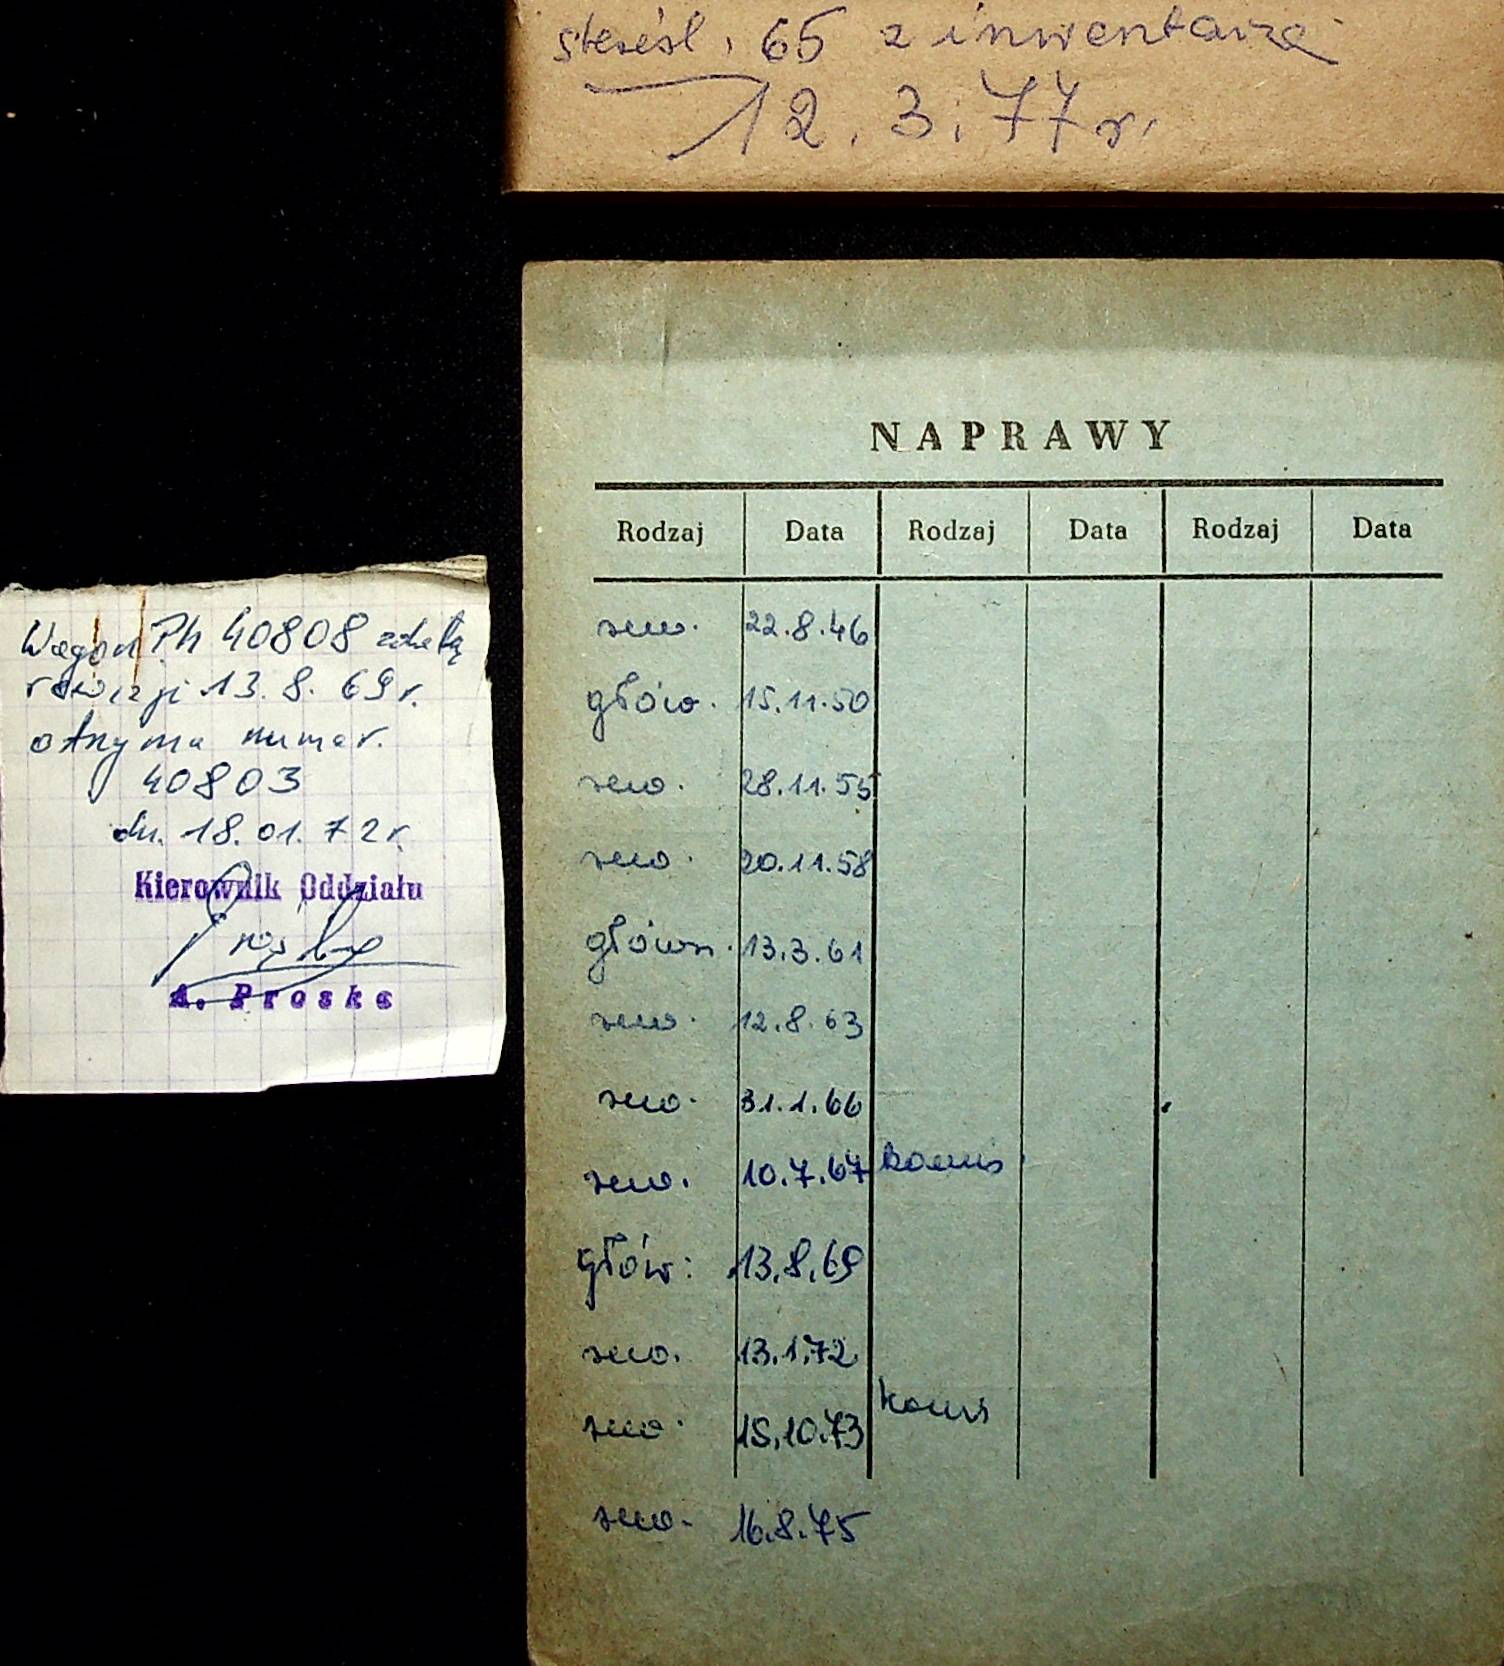 skreśl. 65 z inwentarza
12.3.77 r.
NAPRAWY
Rodzaj Data Rodzaj Data Rodzaj Data
rew. 22.8.46
głów. 15.11.50
rew. 28.11.55
rew. 20.11.58
główn. 13.3.61
rew. 12.8.63
rew. 31.1.66
rew. 10.7.67
głów: 13.8.69
rew. 13.1.72
rew. 15.10.73
rew. 16.8.75
Wagon Ph 40808 z datą
rewizji 13.8.69 r.
otrzyma numer.
40803
dn. 18.01.72 r.
Kierownik Oddziału
A. Proske